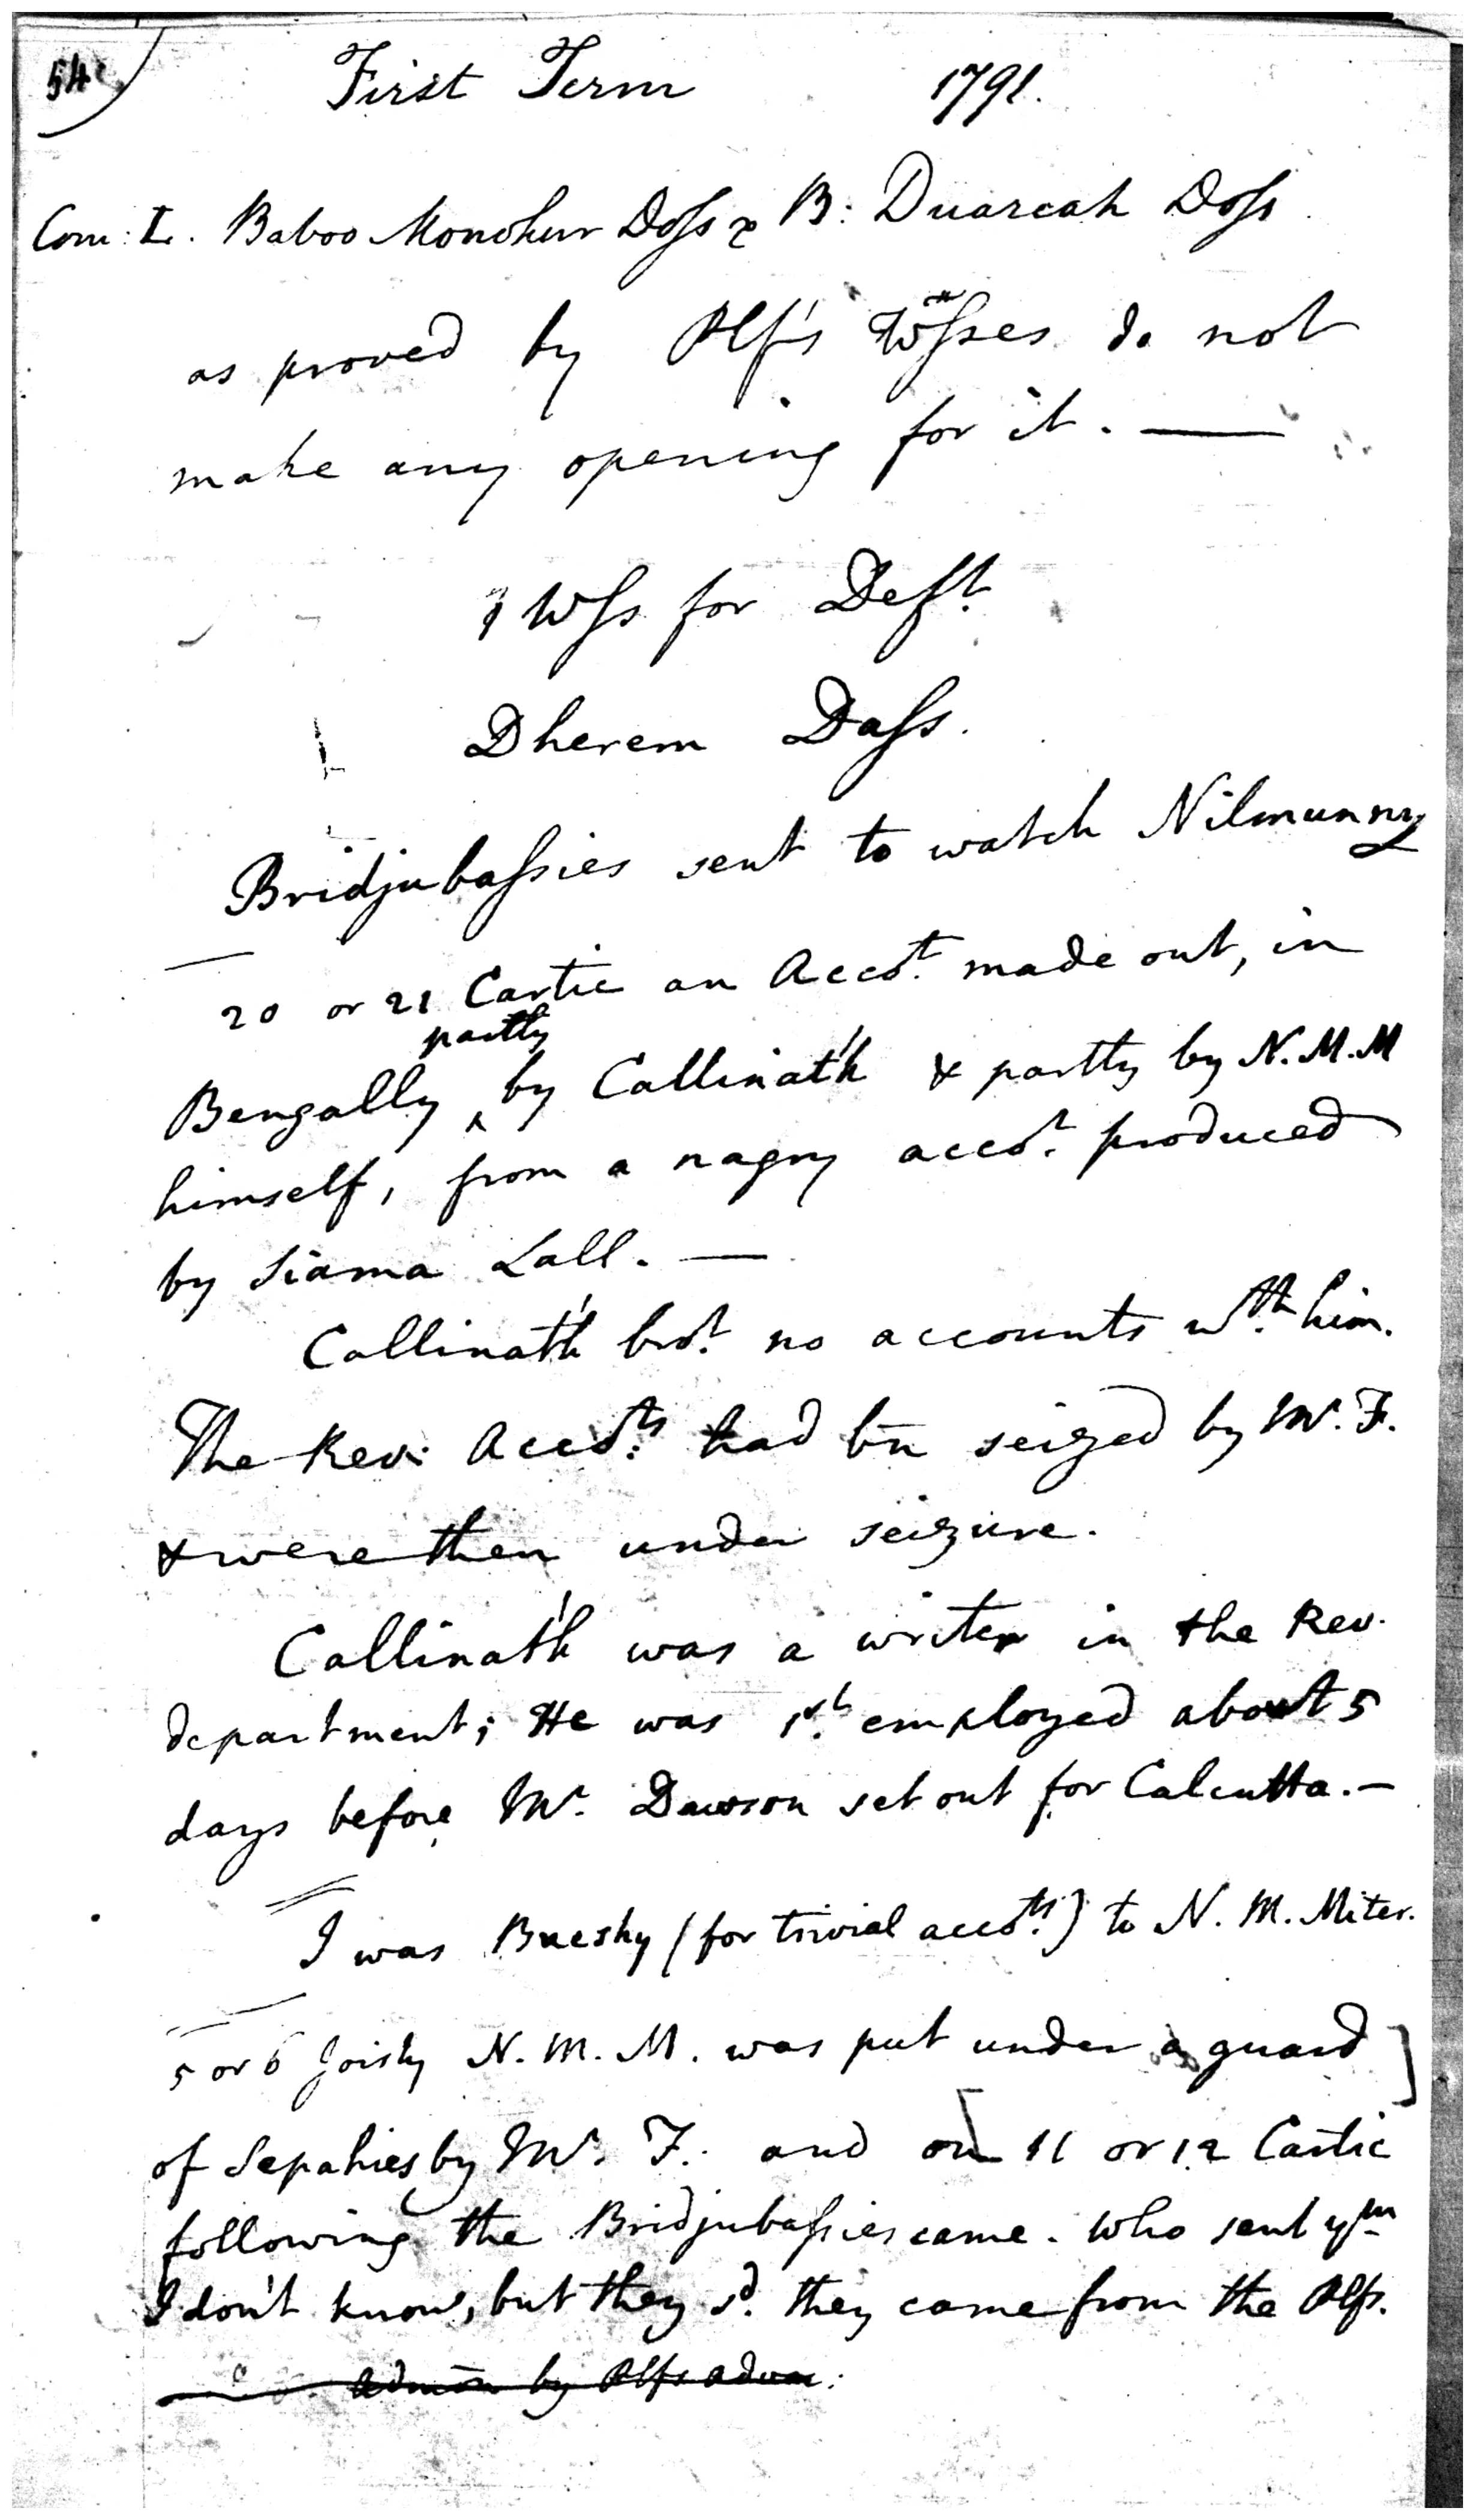 54
First Term 1791.
Com: L. Baboo Monohur Doss & B: Duarcah Doss
as proved by Plf's Wsses do not
make any opening for it. —
1 Wss for Deft.
Dherem Dass.
Bridjubassies sent to watch Nilmunny
20 or 21 Cartic an Accot. made out, in
partly
Bengally ^ by Callinath & partly by N. M. M
himself, from a nagry accot. produced
by Siama Lall. —
Callinath brot. no accounts wth. him.
The Rev: Accots. had bn seized by Mr. F.
& were then under seizure.
Callinath was a writer in the Rev.
department; He was 1st. employed about 5
days before Mr. Dawson set out for Calcutta. —
I was Bucshy (for trivial accots.) to N. M. Miter.
5 or 6 Joisty N. M. M. was put under a guard ]
of Sepahies by Mr. F. and on [ 11 or 12 Cartic
following the Bridjubassies came. Who sent ym
I don't know, but they sd. they came from the Plf.
admon by Plfs advoc: